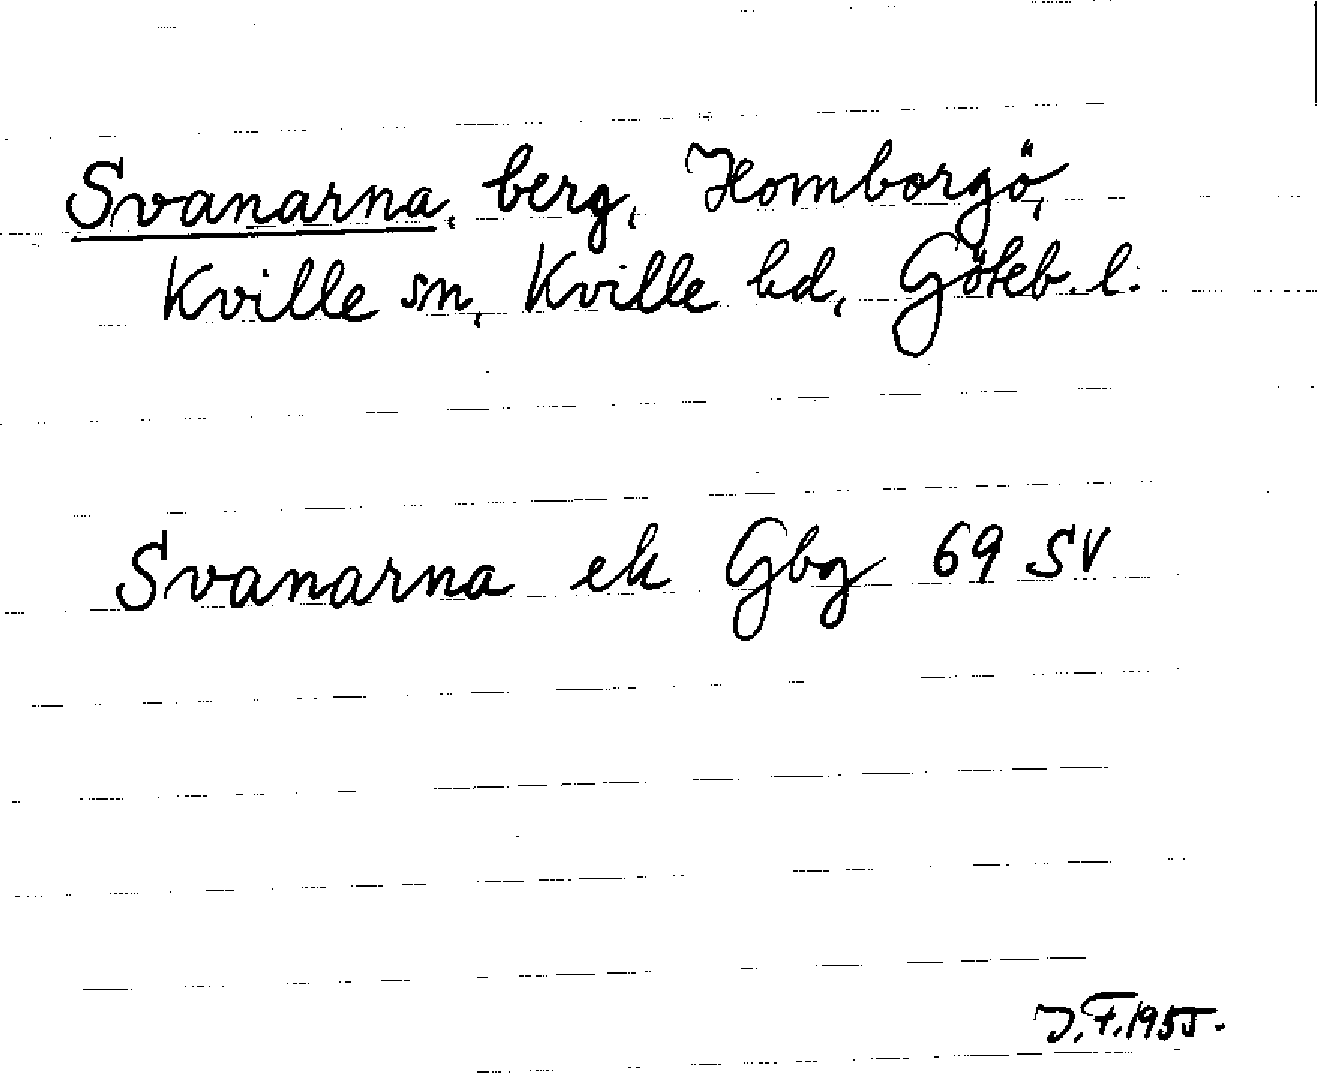 Svanarna, berg, Homborgö,
Kville sn, Kville hd, Göteb. l.
Svanarna ek Gbg 69 SV
J.F. 1955.